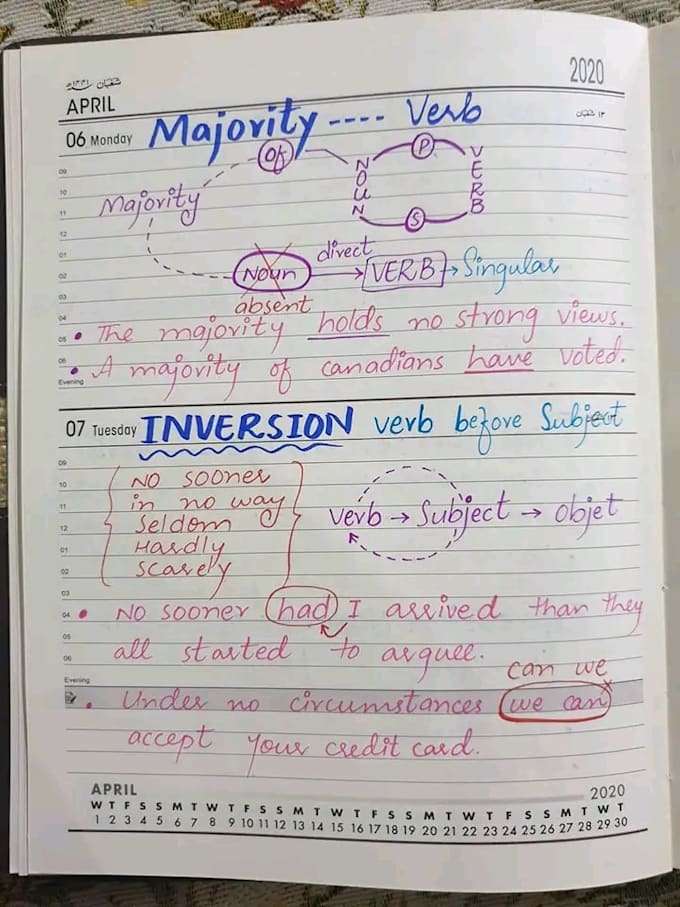 شعبان ١٤٤١ھ
2020
APRIL
06 Monday Majority ---- Verb
١٢ شعبان
09
Of
P
NOUN
VERB
10
Majority
11
S
12
01
direct
02
Noun VERB → Singular
03
absent
04
05 • The majority holds no strong views.
06 • A majority of canadians have voted.
Evening
07 Tuesday INVERSION verb before Subject
09
10 NO sooner
11 in no way
12 Seldom
Verb → Subject → Objet
01 Hardly
02 Scarely
03
04 • NO sooner had I arrived than they
05
06 all started to arguee.
can we
Evening
• Under no circumstances we can x
accept your credit card.
APRIL 2020
W T F S S M T W T F S S M T W T F S S M T W T F S S M T W T
1 2 3 4 5 6 7 8 9 10 11 12 13 14 15 16 17 18 19 20 21 22 23 24 25 26 27 28 29 30